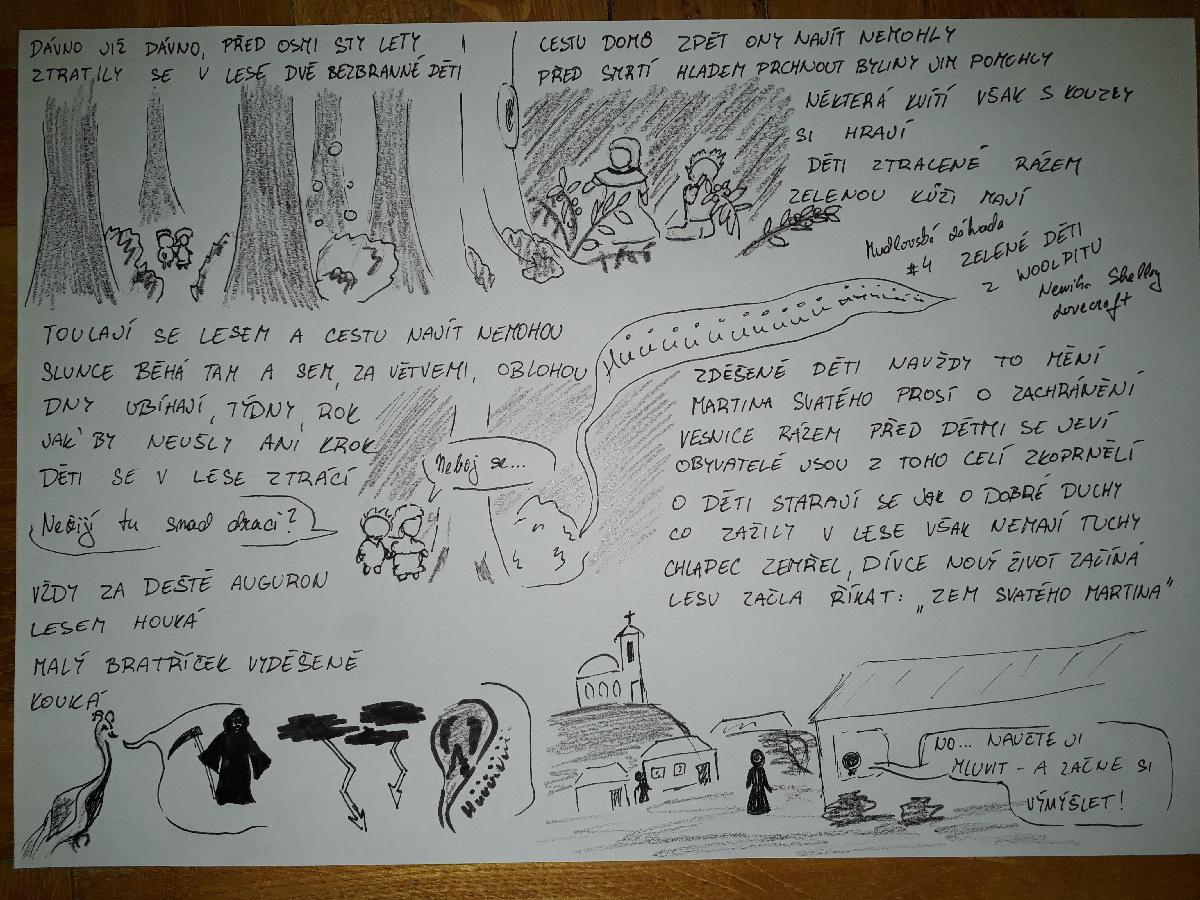 DÁVNO JIŽ DÁVNO, PŘED OSMI STY LETY
ZTRATILY SE V LESE DVĚ BEZBRANNÉ DĚTI
CESTU DOMŮ ZPĚT ONY NAJÍT NEMOHLY
PŘED SMRTÍ HLADEM PRCHNOUT BYLINY JIM POMOHLY
NĚKTERÁ KVÍTÍ VŠAK S KOUZLY
SI HRAJÍ
DĚTI ZTRACENÉ RÁZEM
ZELENOU KŮŽI MAJÍ
Mudlovská záhada
#4 ZELENÉ DĚTI
Z WOOLPITU
Shelley
Lovecraft
TOULAJÍ SE LESEM A CESTU NAJÍT NEMOHOU
SLUNCE BĚHÁ TAM A SEM, ZA VĚTVEMI, OBLOHOU
DNY UBÍHAJÍ, TÝDNY, ROK
JAK BY NEUŠLY ANI KROK
DĚTI SE V LESE ZTRÁCÍ
Nežijí tu snad draci?
Neboj se...
VŽDY ZA DEŠTĚ AUGURON
LESEM HOUKÁ
MALÝ BRATŘÍČEK VYDĚŠENĚ
KOUKÁ
ZDĚŠENÉ DĚTI NAVŽDY TO MĚNÍ
MARTINA SVATÉHO PROSÍ O ZACHRÁNĚNÍ
VESNICE RÁZEM PŘED DĚTMI SE JEVÍ
OBYVATELÉ JSOU Z TOHO CELÍ ZKOPRNĚLÍ
O DĚTI STARAJÍ SE JAK O DOBRÉ DUCHY
CO ZAŽILY V LESE VŠAK NEMAJÍ TUCHY
CHLAPEC ZEMŘEL, DÍVCE NOVÝ ŽIVOT ZAČÍNÁ
LESU ZAČLA ŘÍKAT: „ZEM SVATÉHO MARTINA"
NO... NAUČTE JI
MLUVIT - A ZAČNE SI
VÝMÝŠLET!